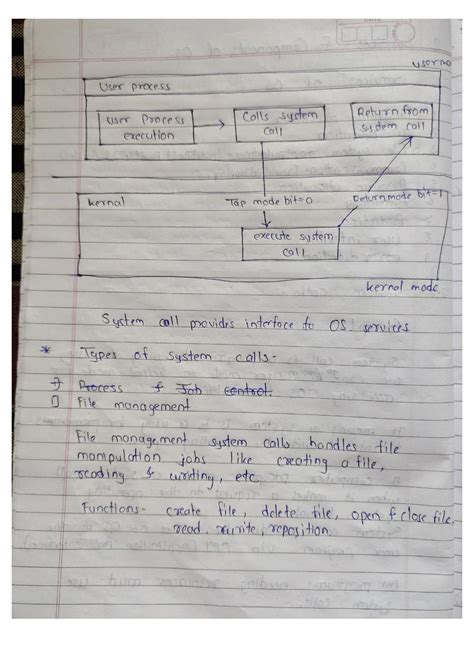 user mo
User process
User Process
execution
Calls system
call
Return from
system call
kernal
Tap mode bit=0
Return mode bit=1
execute system
call
kernel mode.
System call provides interface to OS services
* Types of system calls-
1) Process & Job control.
1) File management
File management system calls handles file
manipulation jobs like creating a file,
reading & writing, etc.
Functions- create file, delete file, open & close file,
read, rewrite, reposition.